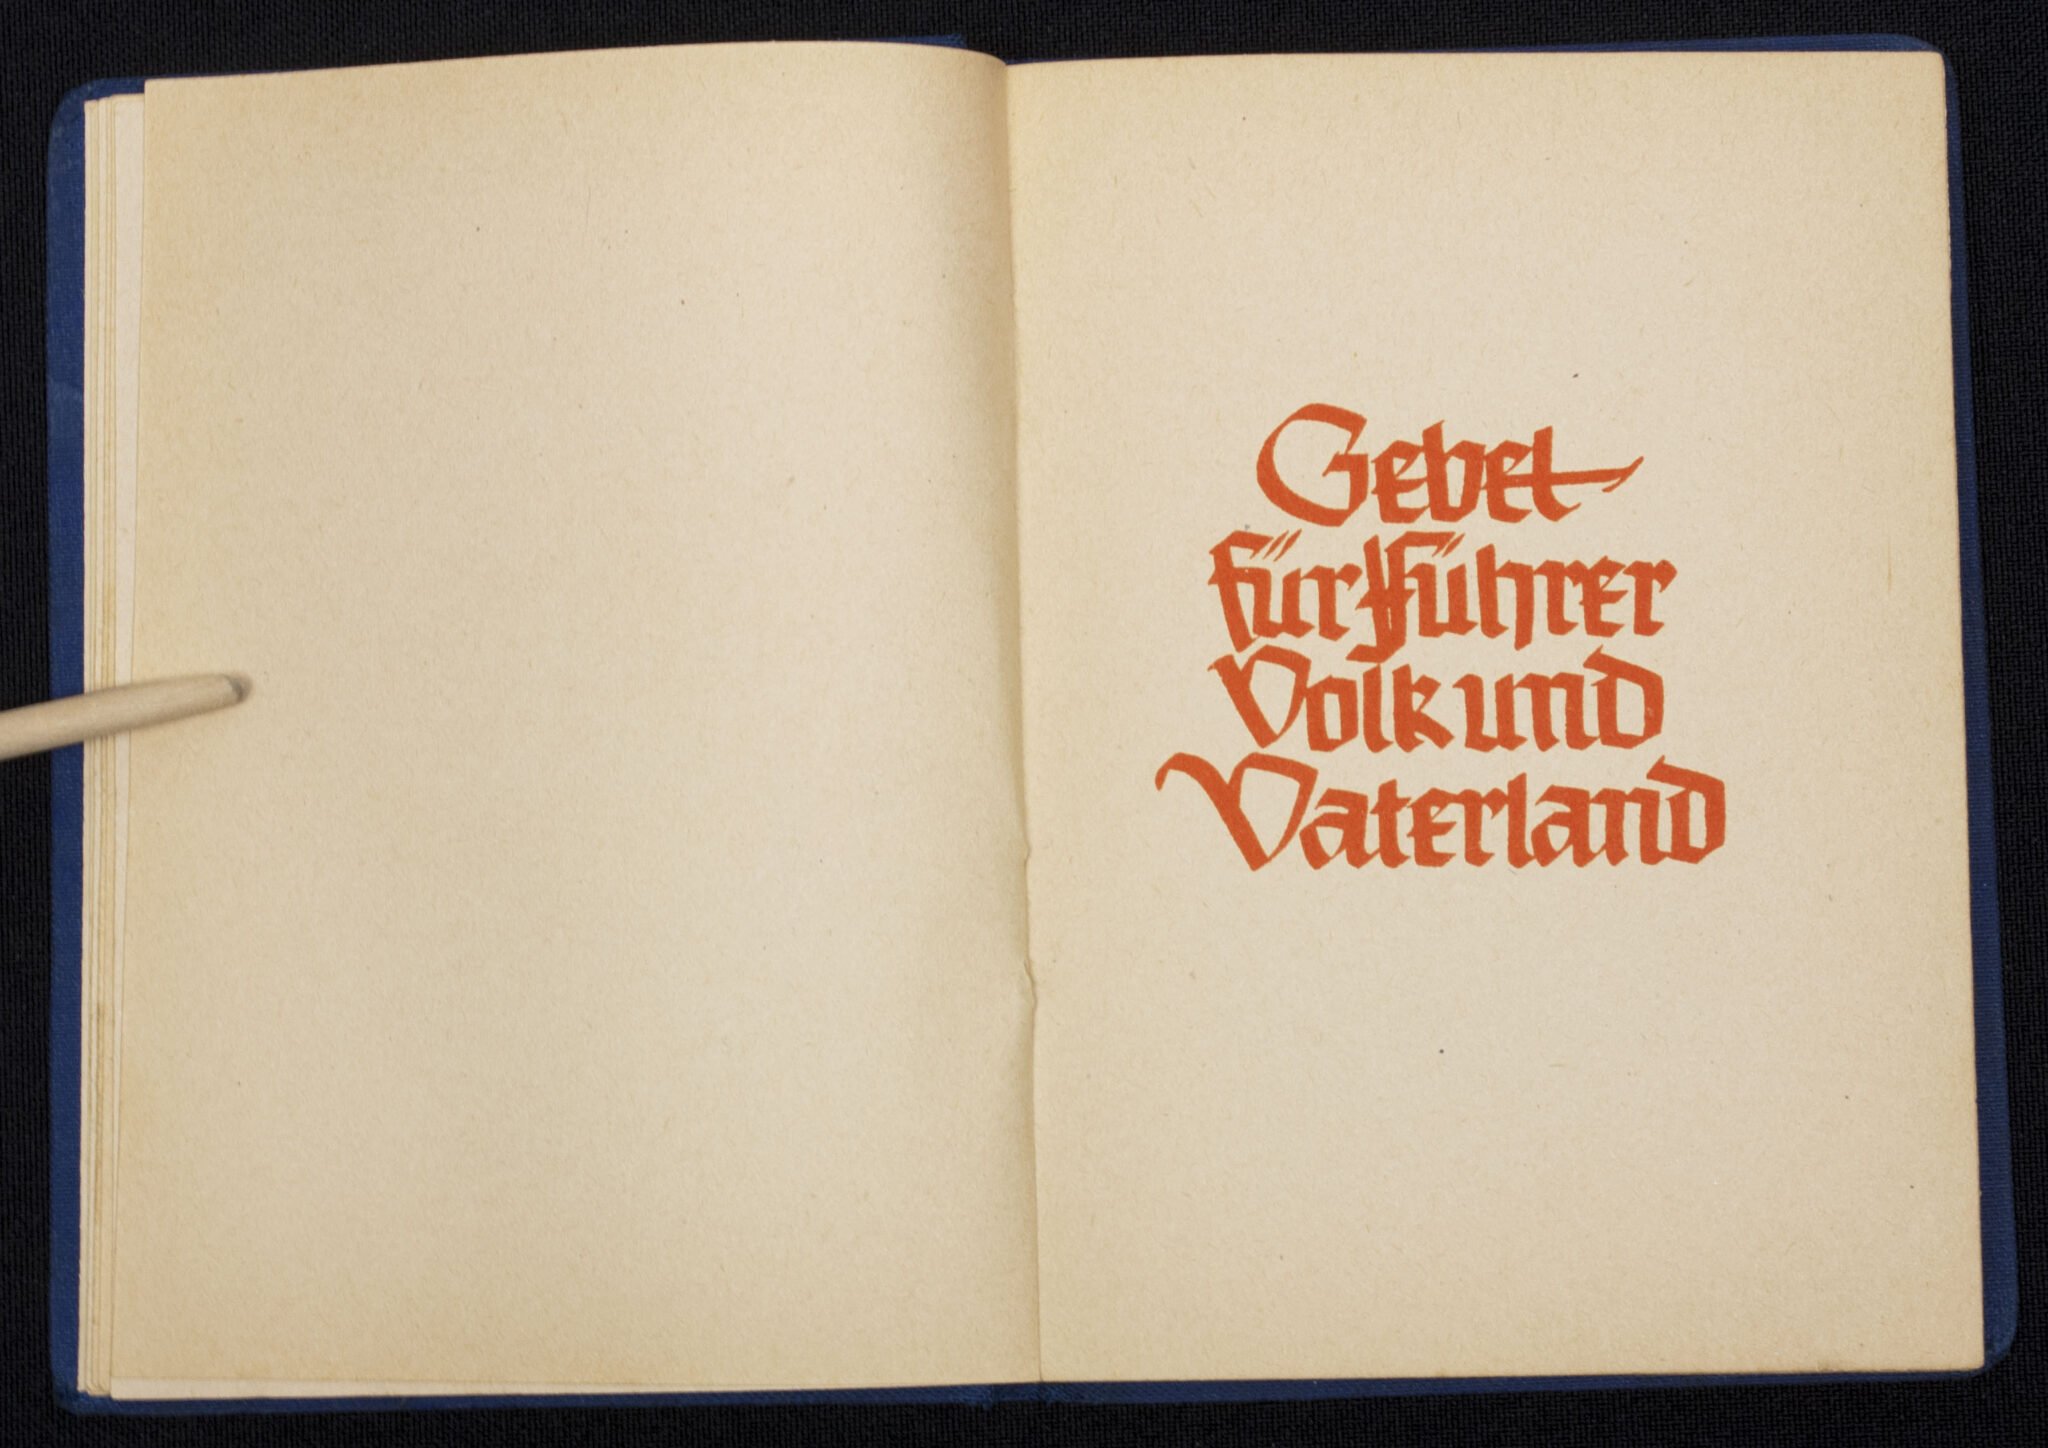 Gebet
für Führer
Volk und
Vaterland